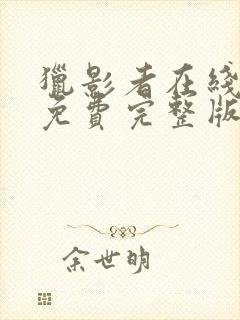 獵影者在线
免費完整版
余世明